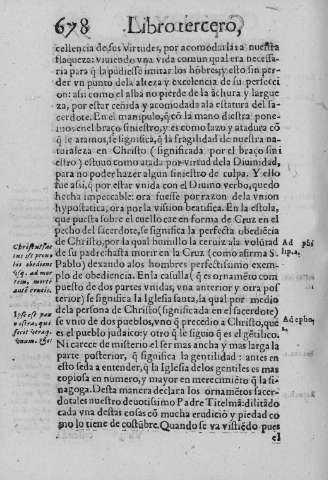 678 Libro tercero,
cellencia de sus Virtudes, por acomodarlas a nuestra
flaqueza: viuiendo vna vida comun qual era necessa-
ria para q̃ la pudiesse imitar los hõbres; y esto sin per-
der vn punto dela alteza y excelencia de su perfeci-
on: asi como el alba no pierde de la ãchura y largue
za, por estar ceñida y acomodada ala estatura del sa-
cerdote. En el manipulo, q̃ cõ la mano diestra pone-
mos enel braço siniestro, y es como lazo y atadura cõ
q̃ le atamos, se significa, q̃ la fragilidad de nuestra na-
turaleza en Christo (significada por el braço sini
estro) estuuo como atada por virtud dela Diuinidad,
para no poder hazer algun siniestro de culpa. Y ello
fue asi, q̃ por estar vnida con el Diuino verbo, quedo
hecha impeccable: ora fuesse por razon dela vnion
hypostatica, ora por la vision beatifica. En la estola,
que puesta sobre el cuello cae en forma de Cruz en el
pecho del sacerdote, se significa la perfecta obediẽcia
de Christo, por la qual humillo la ceruiz ala volũtad
de su padre hasta morir en la Cruz (como afirma S.
Pablo) dexando alos hombres perfectissimo exem-
plo de obediencia. Enla casulla, q̃ es ornamẽto com
puesto de dos partes vnidas, vna anterior y otra pos
terior) se significa la Iglesia santa, la qual por medio
dela persona de Christo (significada en el sacerdote)
se vnio de dos pueblos, vno q̃ precedio a Christo, que
es el pueblo judaico: y otro q̃ le siguio q̃ es el gẽtilico.
Ni carece de misterio el ser mas ancha y mas larga la
parte posterior, q̃ significa la gentilidad: antes en
esto se da a entender, q̃ la Iglesia delos gentiles es mas
copiosa en numero, y mayor en merecimiẽto q̃ la si-
nagoga. Desta manera declara los ornamẽtos sacer-
dotales nuestro deuotissimo Padre Titelmã: dilatãdo
cada vna destas cosas cõ mucha erudiciõ y piedad co
mo lo tiene de costũbre. Quando se va vistiẽdo pues
el
Ad phi
lip. 2.
Ad ephe,
2.